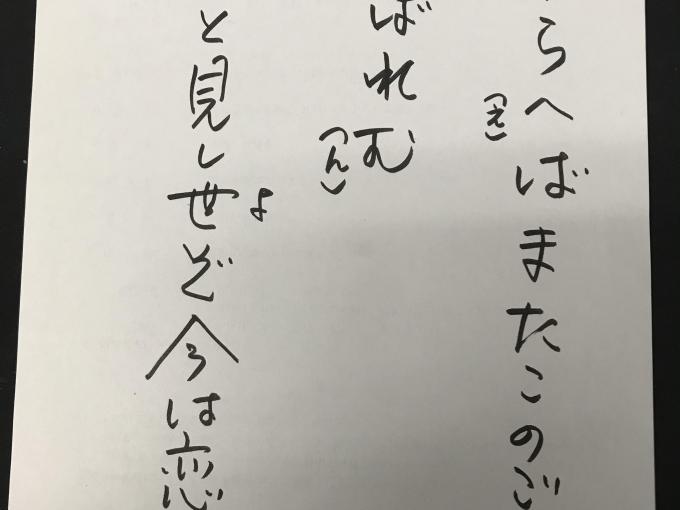 らへ(え)ばまたこのご
ばれむ(ん)
と見し世(よ)ぞ今は恋